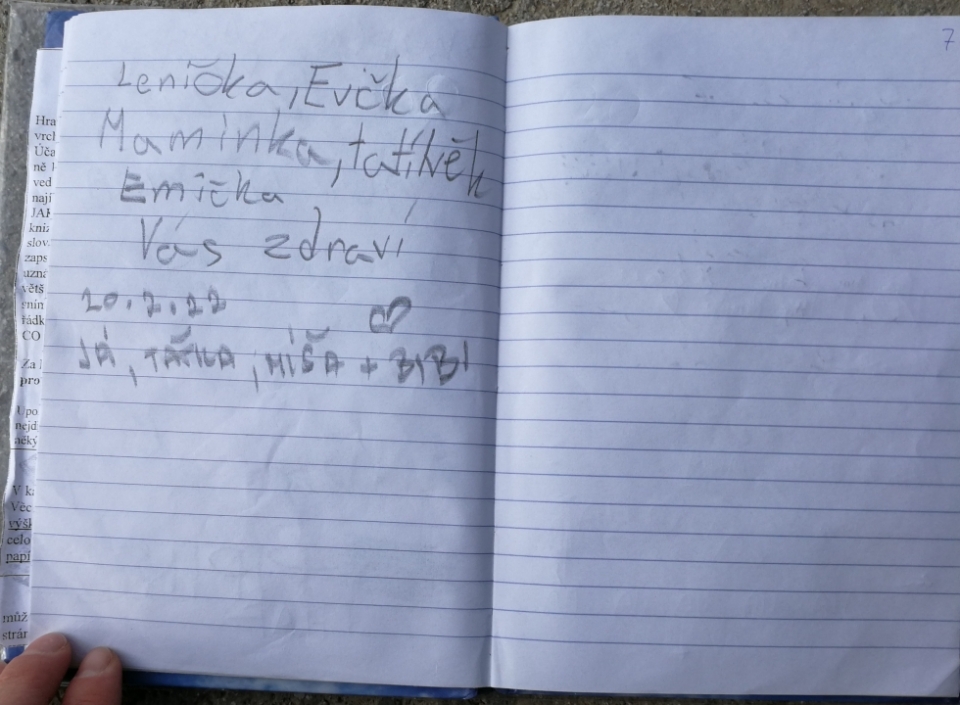 Lenička, Evička
Maminka, tatíněk
Emička
Vás zdraví
20.2.22
JÁ, TAŤKA, MÍŠA + BIBI
7
Hra
vrcl
Úča
ně
ved
nají
JAK
kniz
slov
zaps
uzná
větš
řádk
CO
Za
pro
Upo
nejd
něký
V ka
Věc
výšk
celo
papí
můž
strár